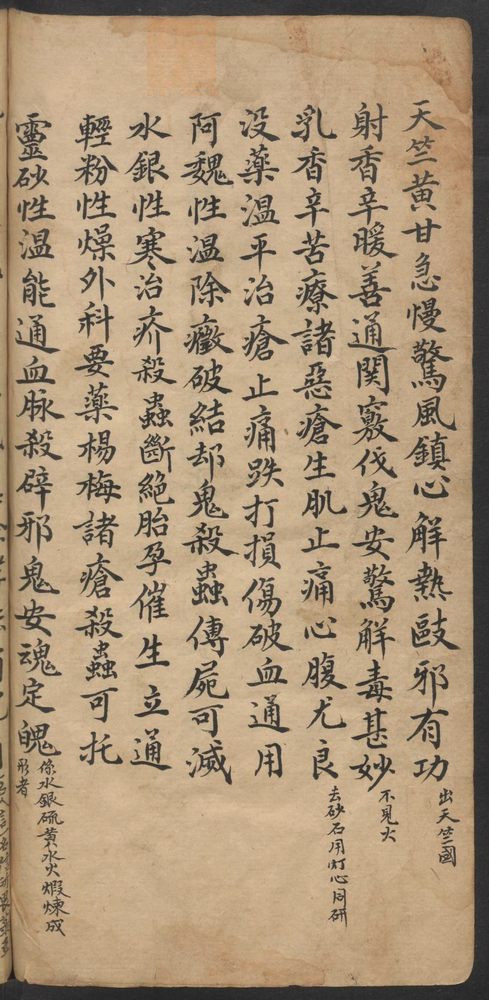 天竺黃甘急慢驚風鎮心解熱敺邪有功 出天竺國
射香辛暖善通関竅伐鬼安驚解毒甚妙 不見火
乳香辛苦療諸惡瘡生肌止痛心腹尤良 去砂石用灯心同研
没藥溫平治瘡止痛跌打損傷破血通用
阿魏性温除癥破結却鬼殺蟲傳屍可滅
水銀性寒治疥殺蟲斷絕胎孕催生立通
輕粉性燥外科要藥楊梅諸瘡殺蟲可托
靈砂性溫能通血脉殺辟邪鬼安魂定魄 係水銀硫黄水火煆煉成形者